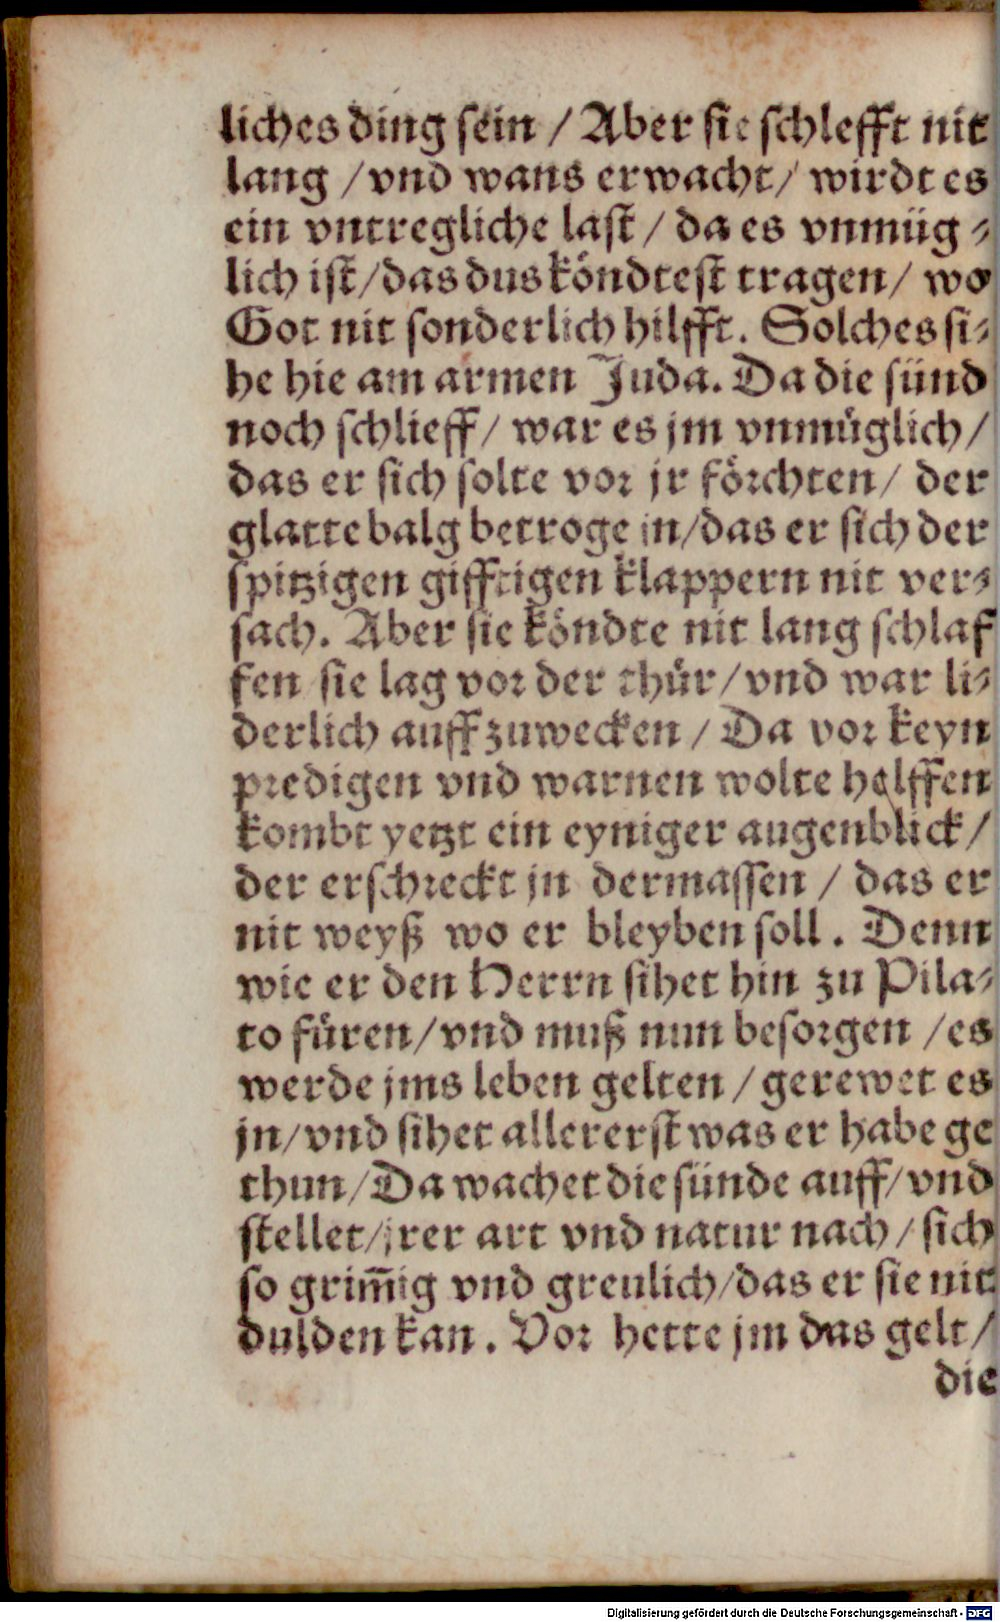 liches ding sein / Aber sie schlefft nit
lang / vnd wans erwacht / wirdt es
ein vntregliche last / da es vnmüg⸗
lich ist / das dus köndtest tragen / wo
Got nit sonderlich hilfft. Solches si⸗
he hie am armen Juda. Da die sünd
noch schlieff / war es jm vnmüglich /
das er sich solte vor jr förchten / der
glatte balg betroge jn / das er sich der
spitzigen gifftigen klappern nit ver⸗
sach. Aber sie köndte nit lang schlaf
fen sie lag vor der thür / vnd war li⸗
derlich auff zuwecken / Da vor keyn
predigen vnd warnen wolte helffen
kombt yetzt ein eyniger augenblick /
der erschreckt jn dermassen / das er
nit weyß wo er bleyben soll. Denn
wie er den Herrn sihet hin zu Pila⸗
to füren / vnd muß nun besorgen / es
werde jms leben gelten / gerewet es
jn / vnd sihet allererst was er habe ge
thun / Da wachet die sünde auff / vnd
stellet / jrer art vnd natur nach / sich
so grim̄ig vnd greulich / das er sie nit
dulden kan. Vor hette jm das gelt /
die
Digitalisierung gefördert durch die Deutsche Forschungsgemeinschaft - DFG